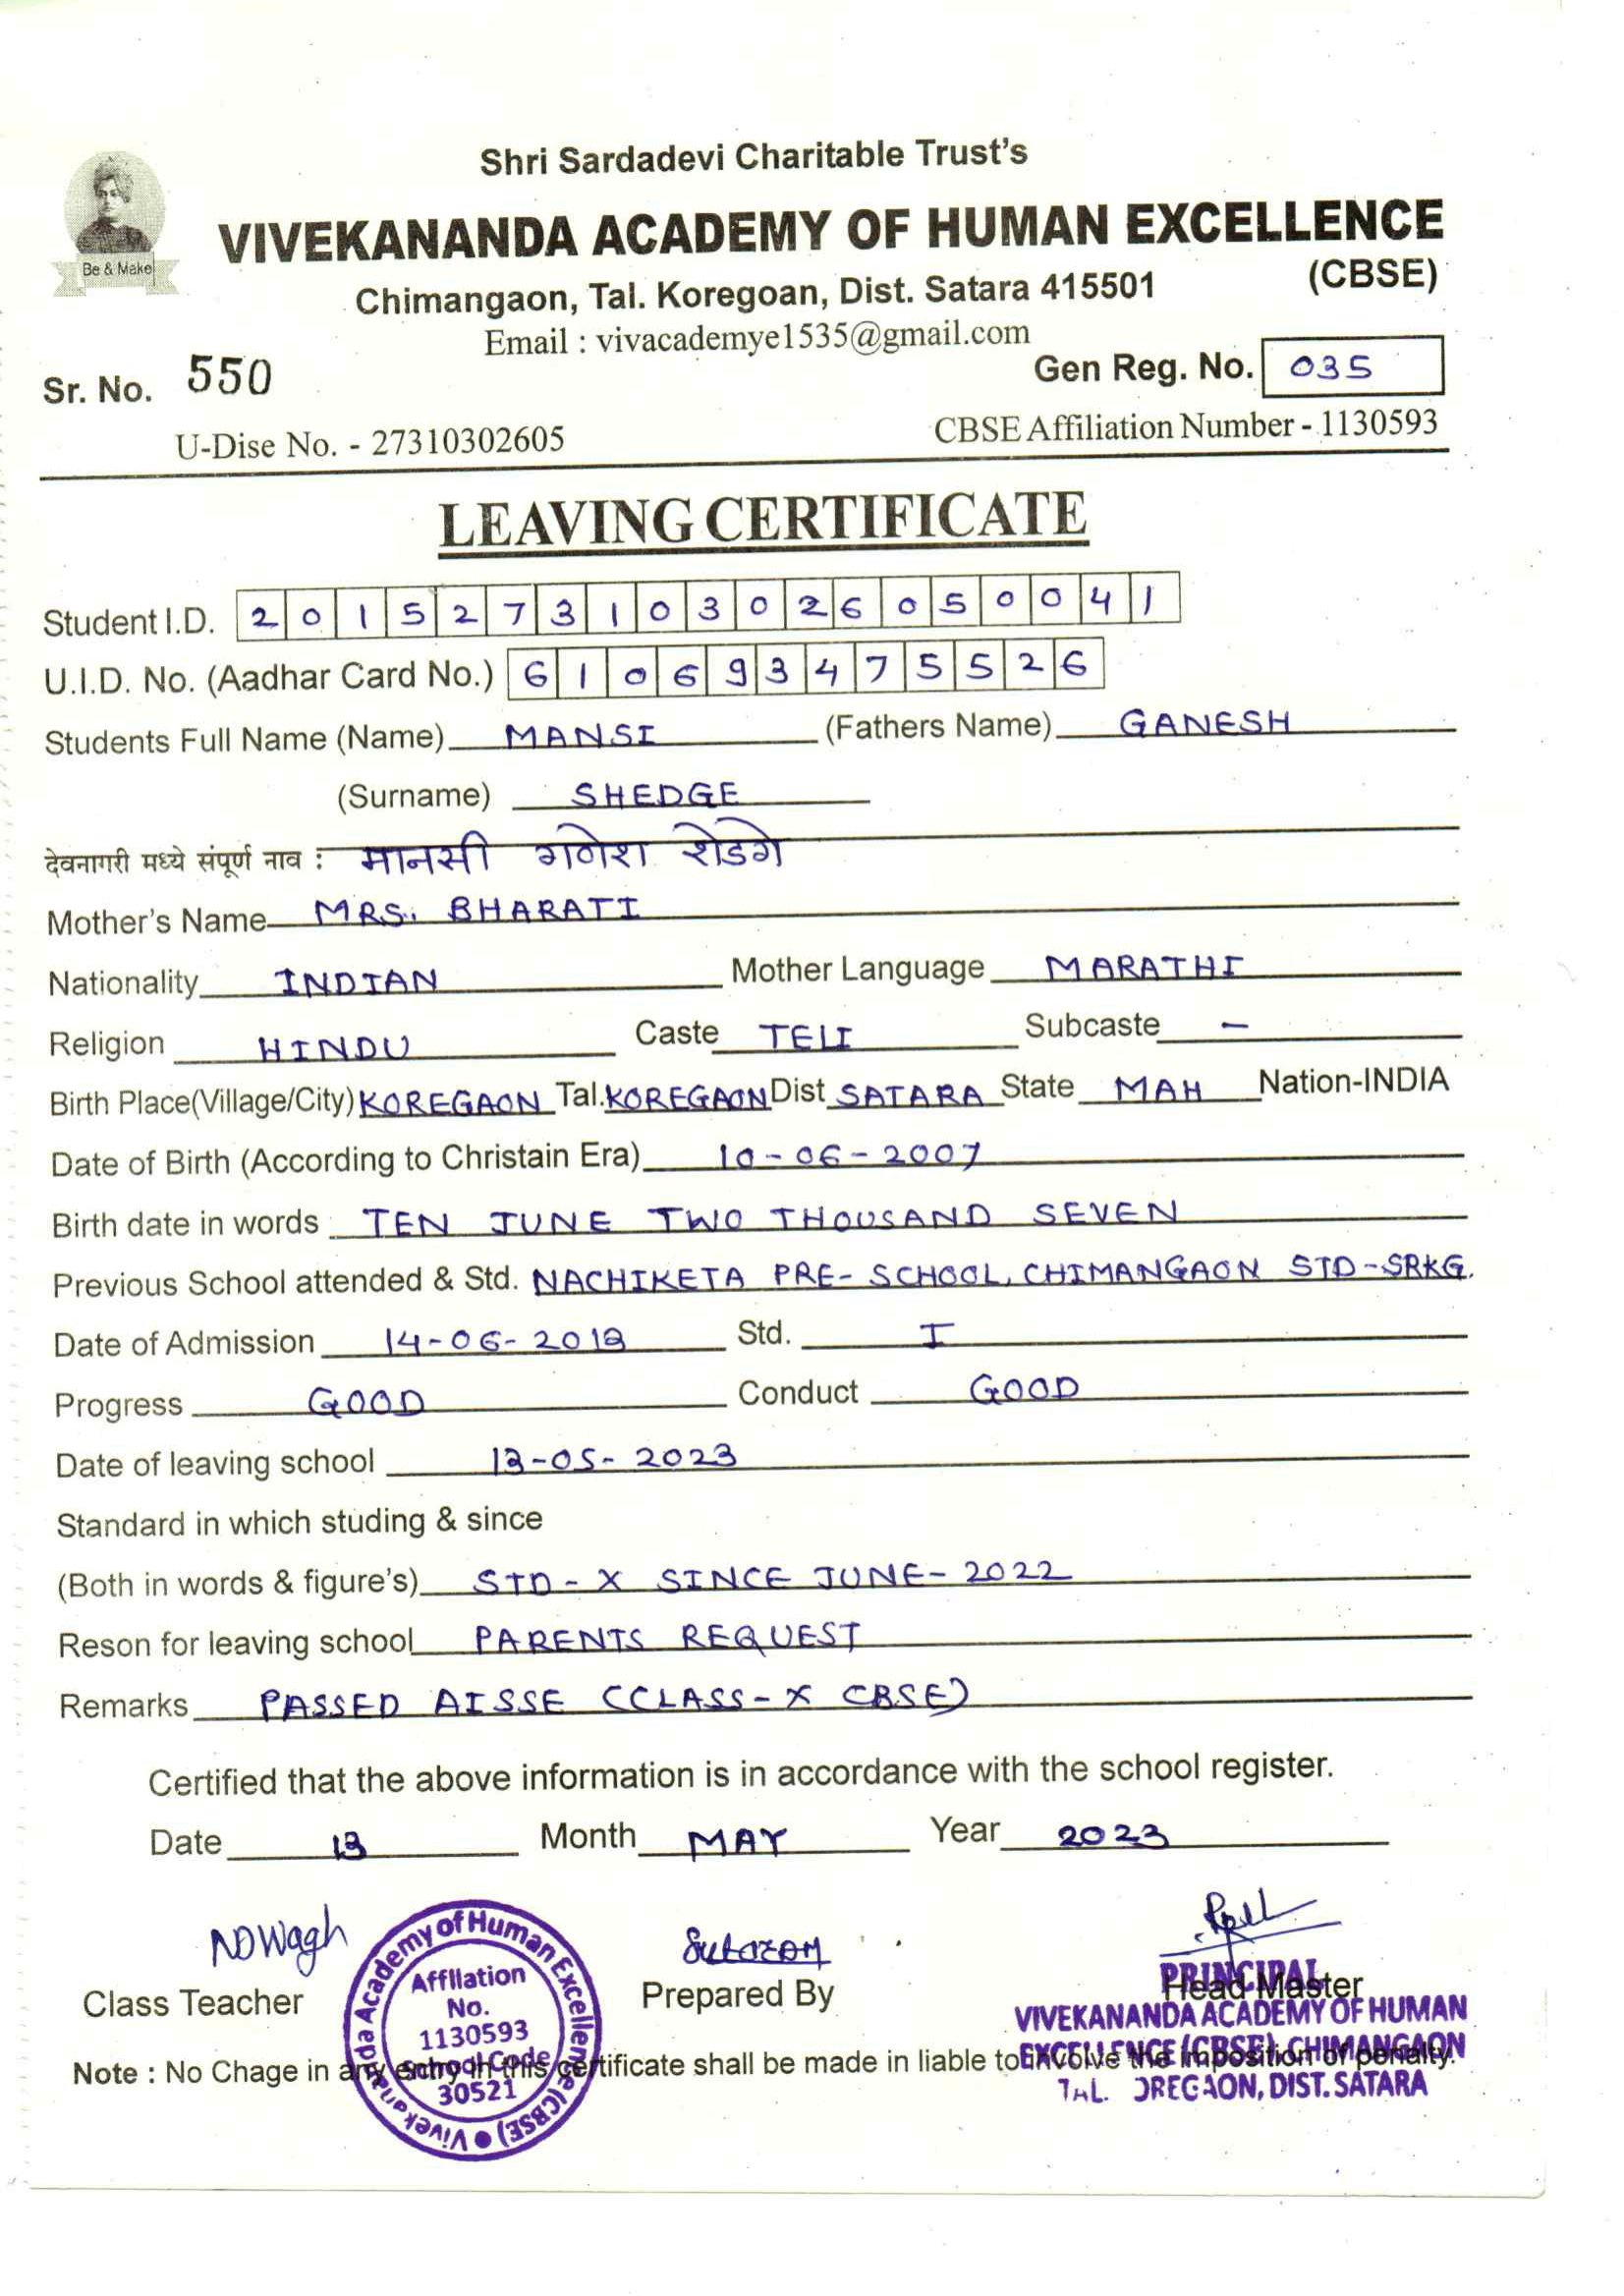 Shri Sardadevi Charitable Trust's
VIVEKANANDA ACADEMY OF HUMAN EXCELLENCE
(CBSE)
Chimangaon, Tal. Koregoan, Dist. Satara 415501
Email : vivacademye1535@gmail.com
Be & Make
Sr. No. 550 Gen Reg. No. 035
U-Dise No. - 27310302605 CBSE Affiliation Number - 1130593
LEAVING CERTIFICATE
Student I.D. 2015273103026050041
U.I.D. No. (Aadhar Card No.) 610693475526
Students Full Name (Name) MANSI (Fathers Name) GANESH
(Surname) SHEDGE
देवनागरी मध्ये संपूर्ण नाव : मानसी गणेश शेडगे
Mother's Name MRS. BHARATI
Nationality INDIAN Mother Language MARATHI
Religion HINDU Caste TELI Subcaste –
Birth Place(Village/City) KOREGAON Tal. KOREGAON Dist SATARA State MAH Nation-INDIA
Date of Birth (According to Christain Era) 10-06-2007
Birth date in words TEN JUNE TWO THOUSAND SEVEN
Previous School attended & Std. NACHIKETA PRE-SCHOOL, CHIMANGAON STD-SRKG.
Date of Admission Std. I
Progress GOOD Conduct GOOD
Date of leaving school 13-05-2023
Standard in which studing & since
(Both in words & figure's) STD-X SINCE JUNE-2022
Reson for leaving school PARENTS REQUEST
Remarks PASSED AISSE (CLASS-X CBSE)
Certified that the above information is in accordance with the school register.
Date 13 Month MAY Year 2023
NDWagh
Class Teacher Prepared By Head Master
Vivekananda Academy of Human Excellence (CBSE)
Affilation
No.
1130593
School Code
30521
PRINCIPAL
VIVEKANANDA ACADEMY OF HUMAN
EXCELLENCE (CBSE), CHIMANGAON
TAL. OREGAON, DIST. SATARA
Note : No Chage in any entry in this certificate shall be made in liable to involve the imposition of penalty.